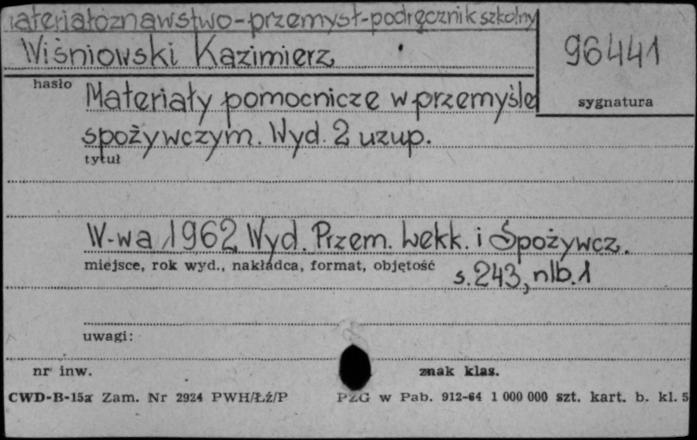 materiałoznawstwo-przemysł-podręcznik szkolny
Wiśniowski Kazimierz
96441
hasło
sygnatura
Materiały pomocnicze w przemyśle
spożywczym. Wyd. 2 uzup.
tytuł
W-wa 1962 Wyd. Przem. Lekk. i Spożywcz.
miejsce, rok wyd., nakładca, format, objętość
s. 243, nlb. 1
uwagi:
nr inw.
znak klas.
CWD-B-15a Zam. Nr 2924 PWH/Łź/P
PZG w Pab. 912-64 1 000 000 szt. kart. b. kl. 5